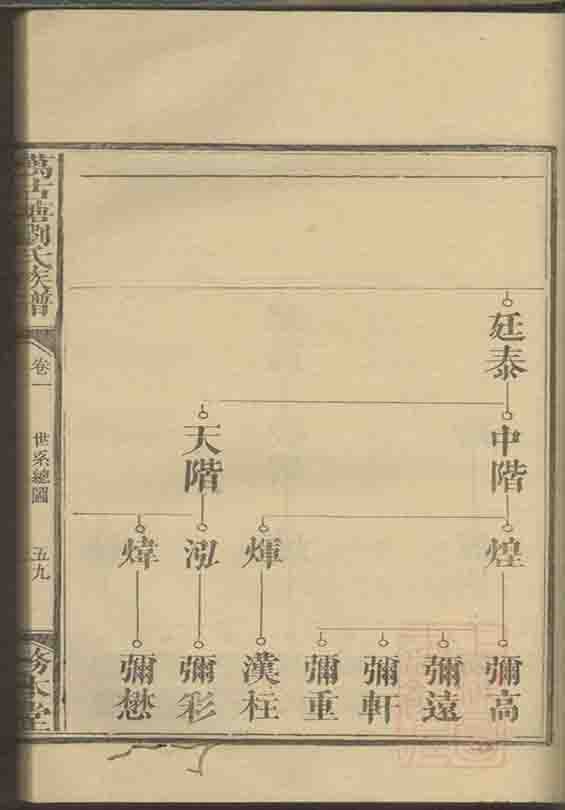 廷泰
中階
天階
煌
煇
泓
煒
彌高
彌遠
彌軒
彌重
漢柱
彌彩
彌懋
萬古塘劉氏族譜
卷一
世系總圖
五九
務本堂